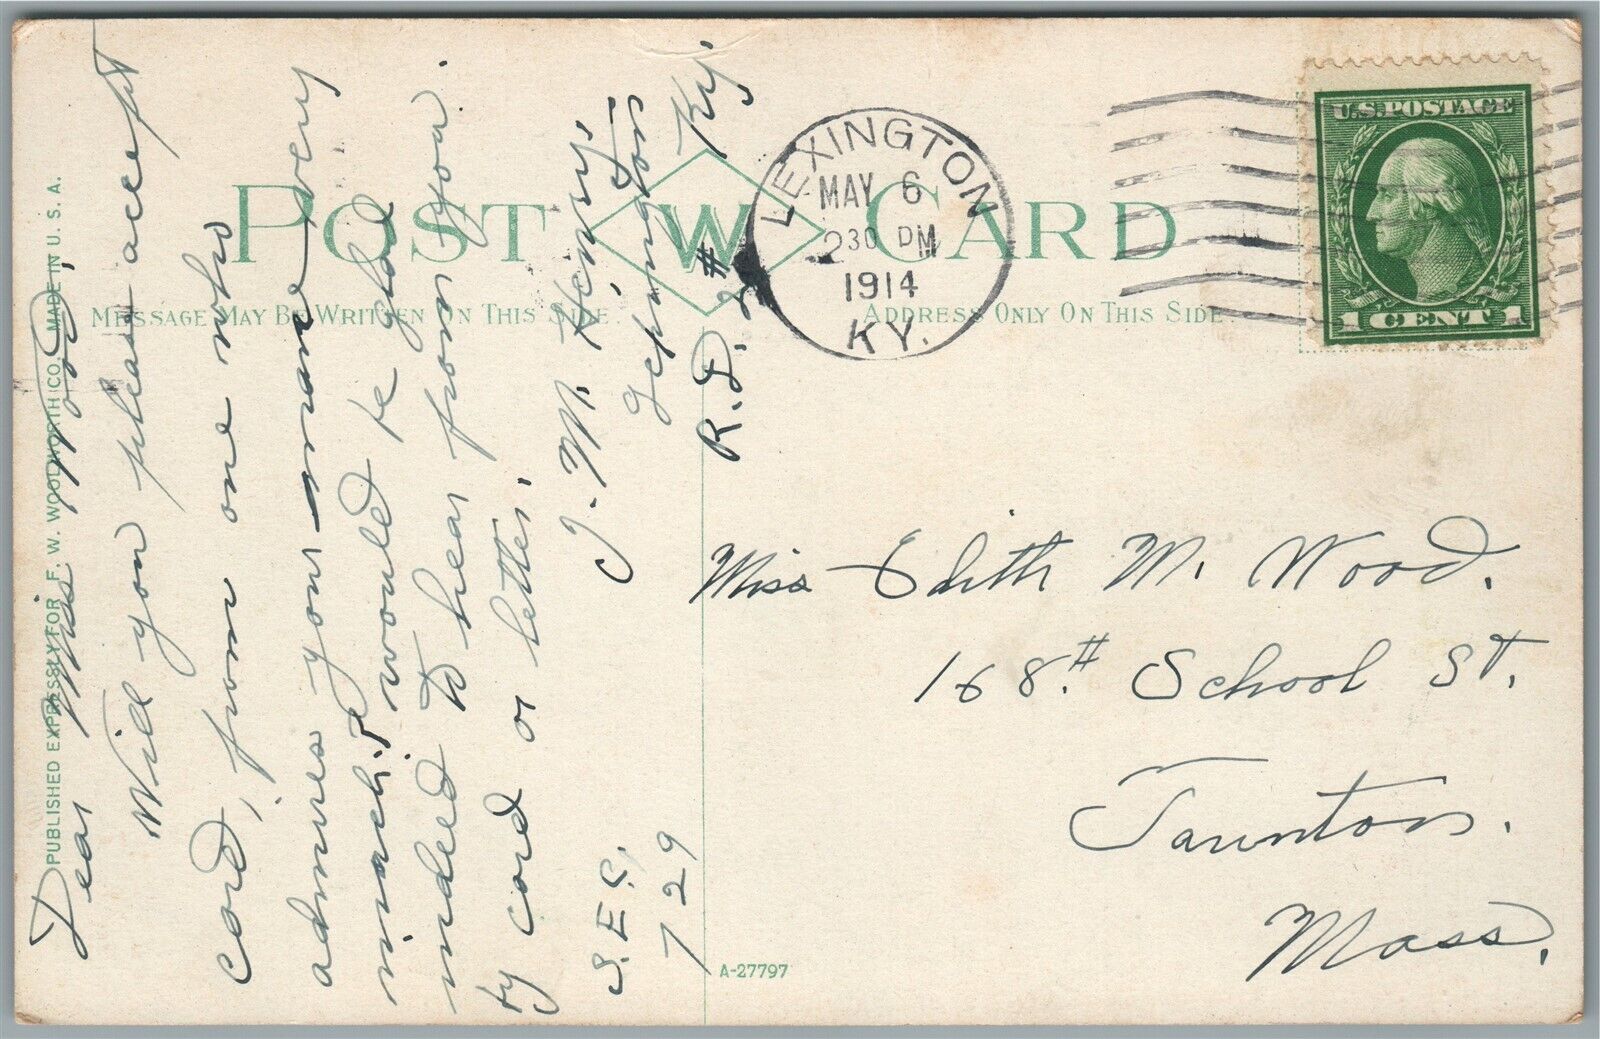 PUBLISHED EXPRESSLY FOR F. W. WOOLWORTH CO. MADE IN U. S. A.
POST W CARD
MESSAGE MAY BE WRITTEN ON THIS SIDE.
ADDRESS ONLY ON THIS SIDE
Dear Miss Wood,
Will you please accept
card, from one who
admires your name very
much; & would be glad
indeed to hear from you.
by card or letter.
J. M. Henry,
Lexington
R.D. 2# Ky.
S.E.S,
729
LEXINGTON
MAY 6
230 PM
1914
KY.
U.S. POSTAGE
1 CENT 1
Miss Edith M. Wood.
168# School St.
Taunton.
Mass.
A-27797